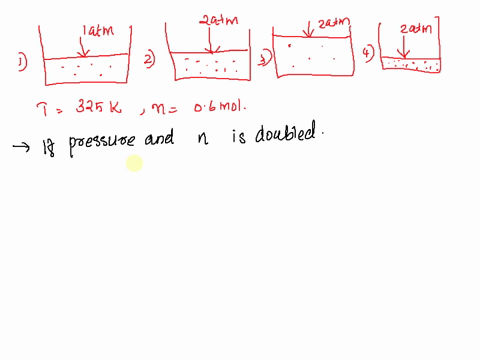 1atm 2atm 2atm 2atm
1) 2) 3) 4)
T = 325 K , n = 0.6 mol.
→ If pressure and n is doubled.